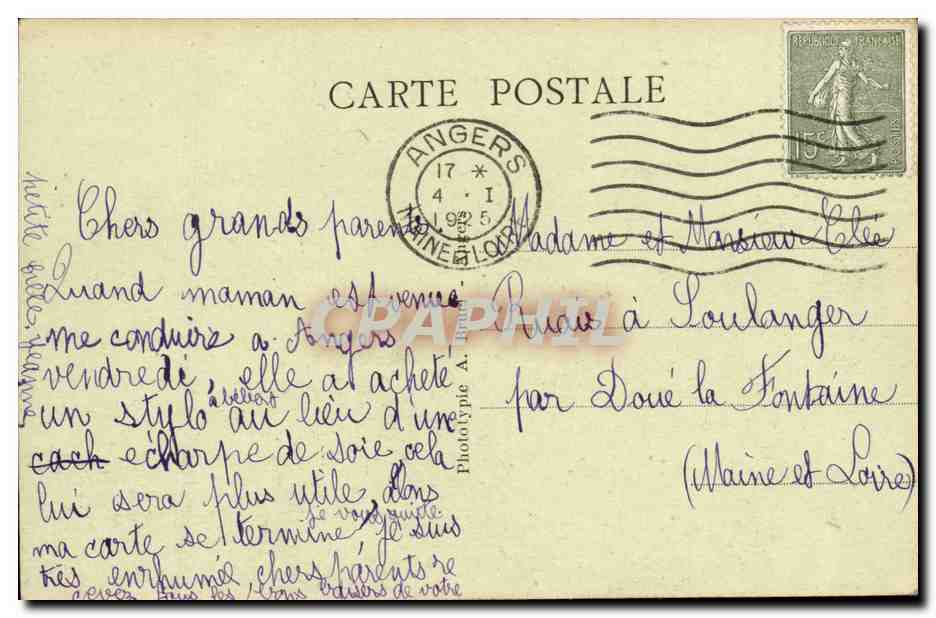 CARTE POSTALE
RÉPUBLIQUE FRANÇAISE
15c
POSTES
ANGERS
17 *
4 . I
1925
MAINE ET LOIRE
Chers grands parents
Quand maman est venue
me conduire a Angers
vendredi, elle a acheté
un stylo au lieu d'une
cach écharpe de soie, cela
lui sera plus utile, dans
ma carte se termine, je vous quitte je suis
très enrhumée, chers parents re
cevez tous les bons baisers de votre
petite fille Jeanne
Madame et Monsieur
à Soulanger
par Doué la Fontaine
(Maine et Loire)
Phototypie A.
Angers
CPAPHIL